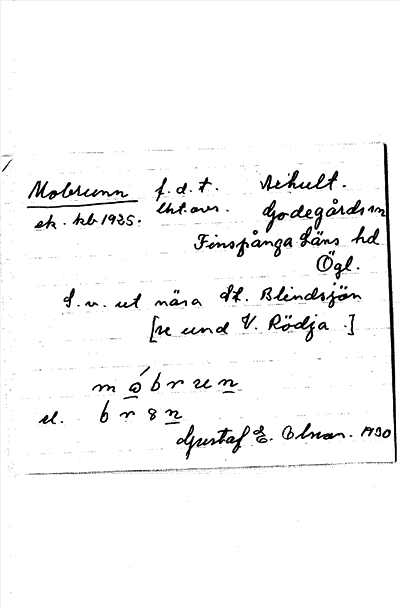 Mobrunn f. d. t. Nikult.
ek. kb 1925. Godegårds sn
Finspånga Läns hd
Ögl.
S. v. ut nära St. Blindsjön
[se und V. Rödja.]
m o ́ b r u n
el. b r 8 n
Gustaf E. Olson. 1930